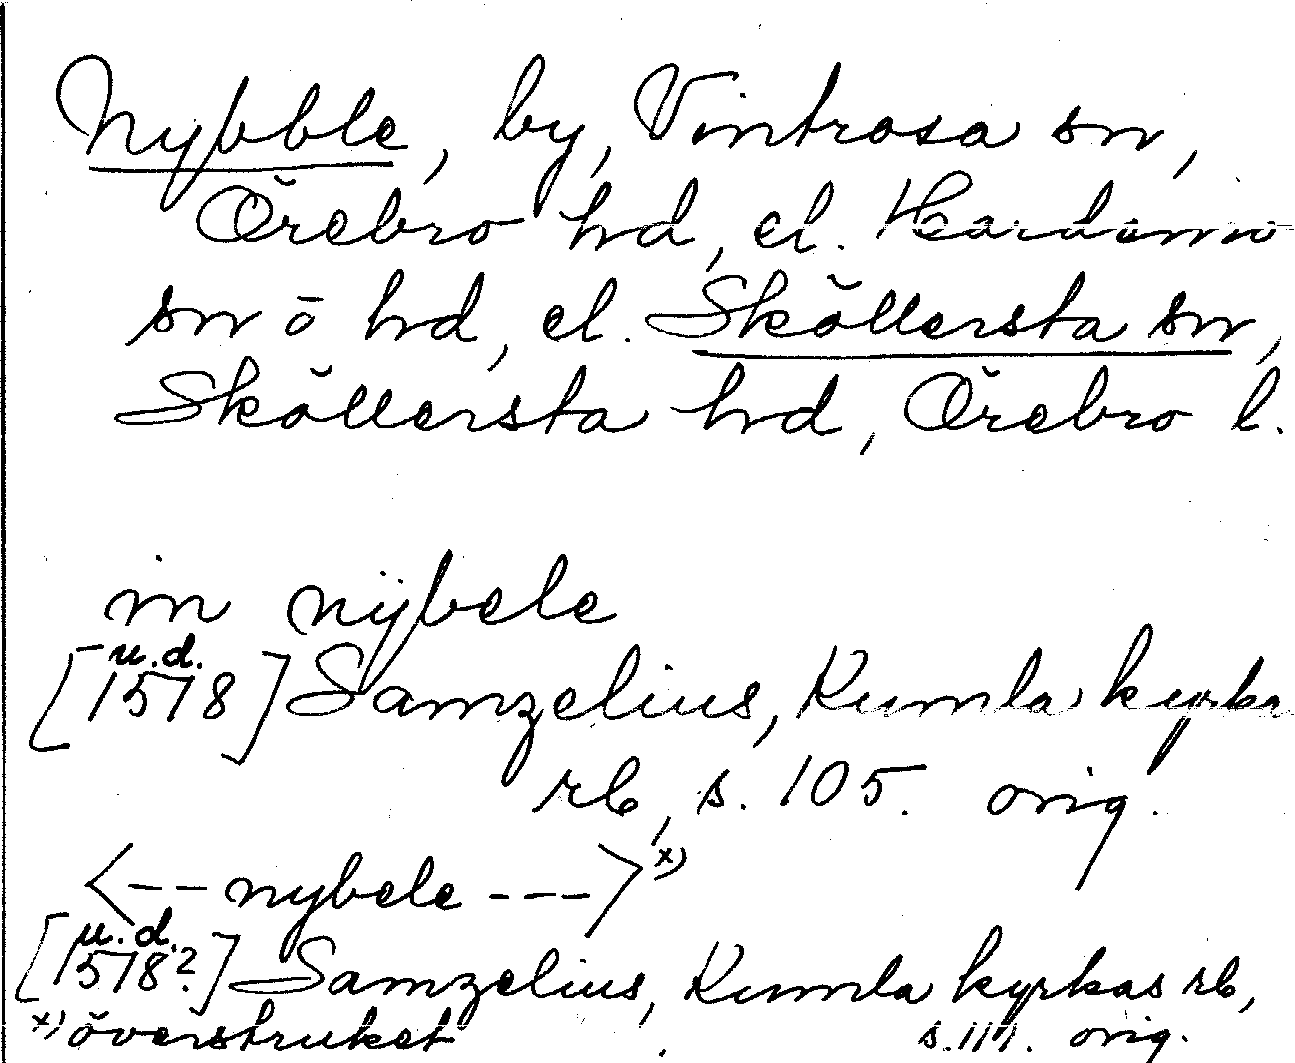 Nybble, by, Vintrosa sn,
Örebro hrd, el. Hardemo
sn o hrd, el. Sköllersta sn,
Sköllersta hrd, Örebro l.
in nÿbele
u.d.
[1578] Samzelius, Kumla kyrka
rb, s. 105. orig.
<-- nybele --->x)
u.d.
[1578?] Samzelius, Kumla kyrkas rb,
x) överstruket s. 117. orig.